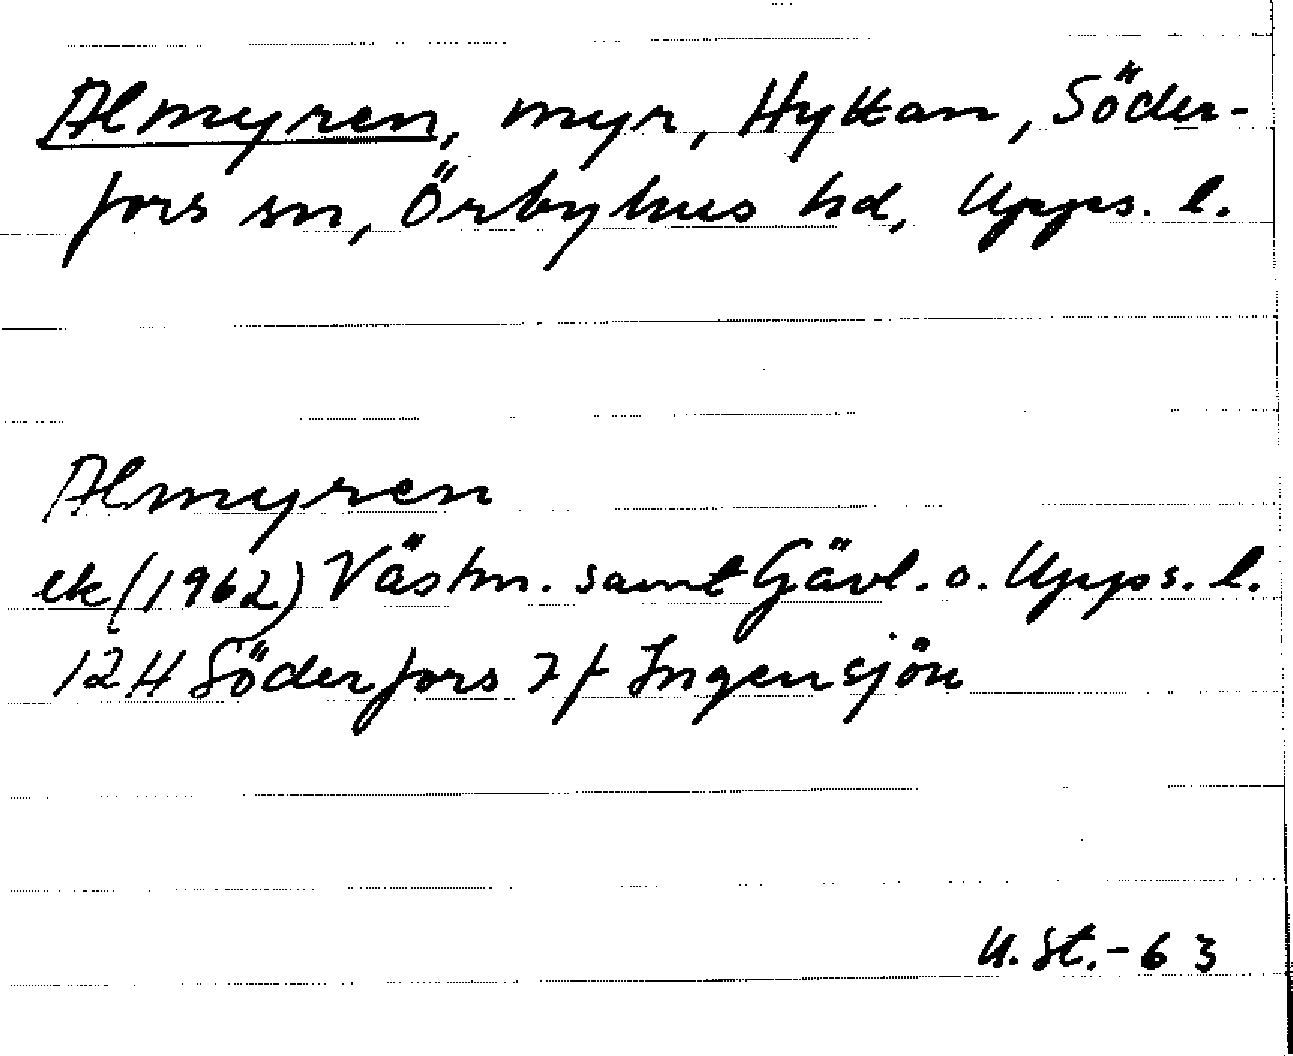 Almyren, myr, Hyttan, Söder-
fors sn, Örbyhus hd, Upps. l.
Almyren
ek (1962) Västm. samt Gävl. o. Upps. l.
12H Söderfors 7f Ingensjön
U. St. - 63